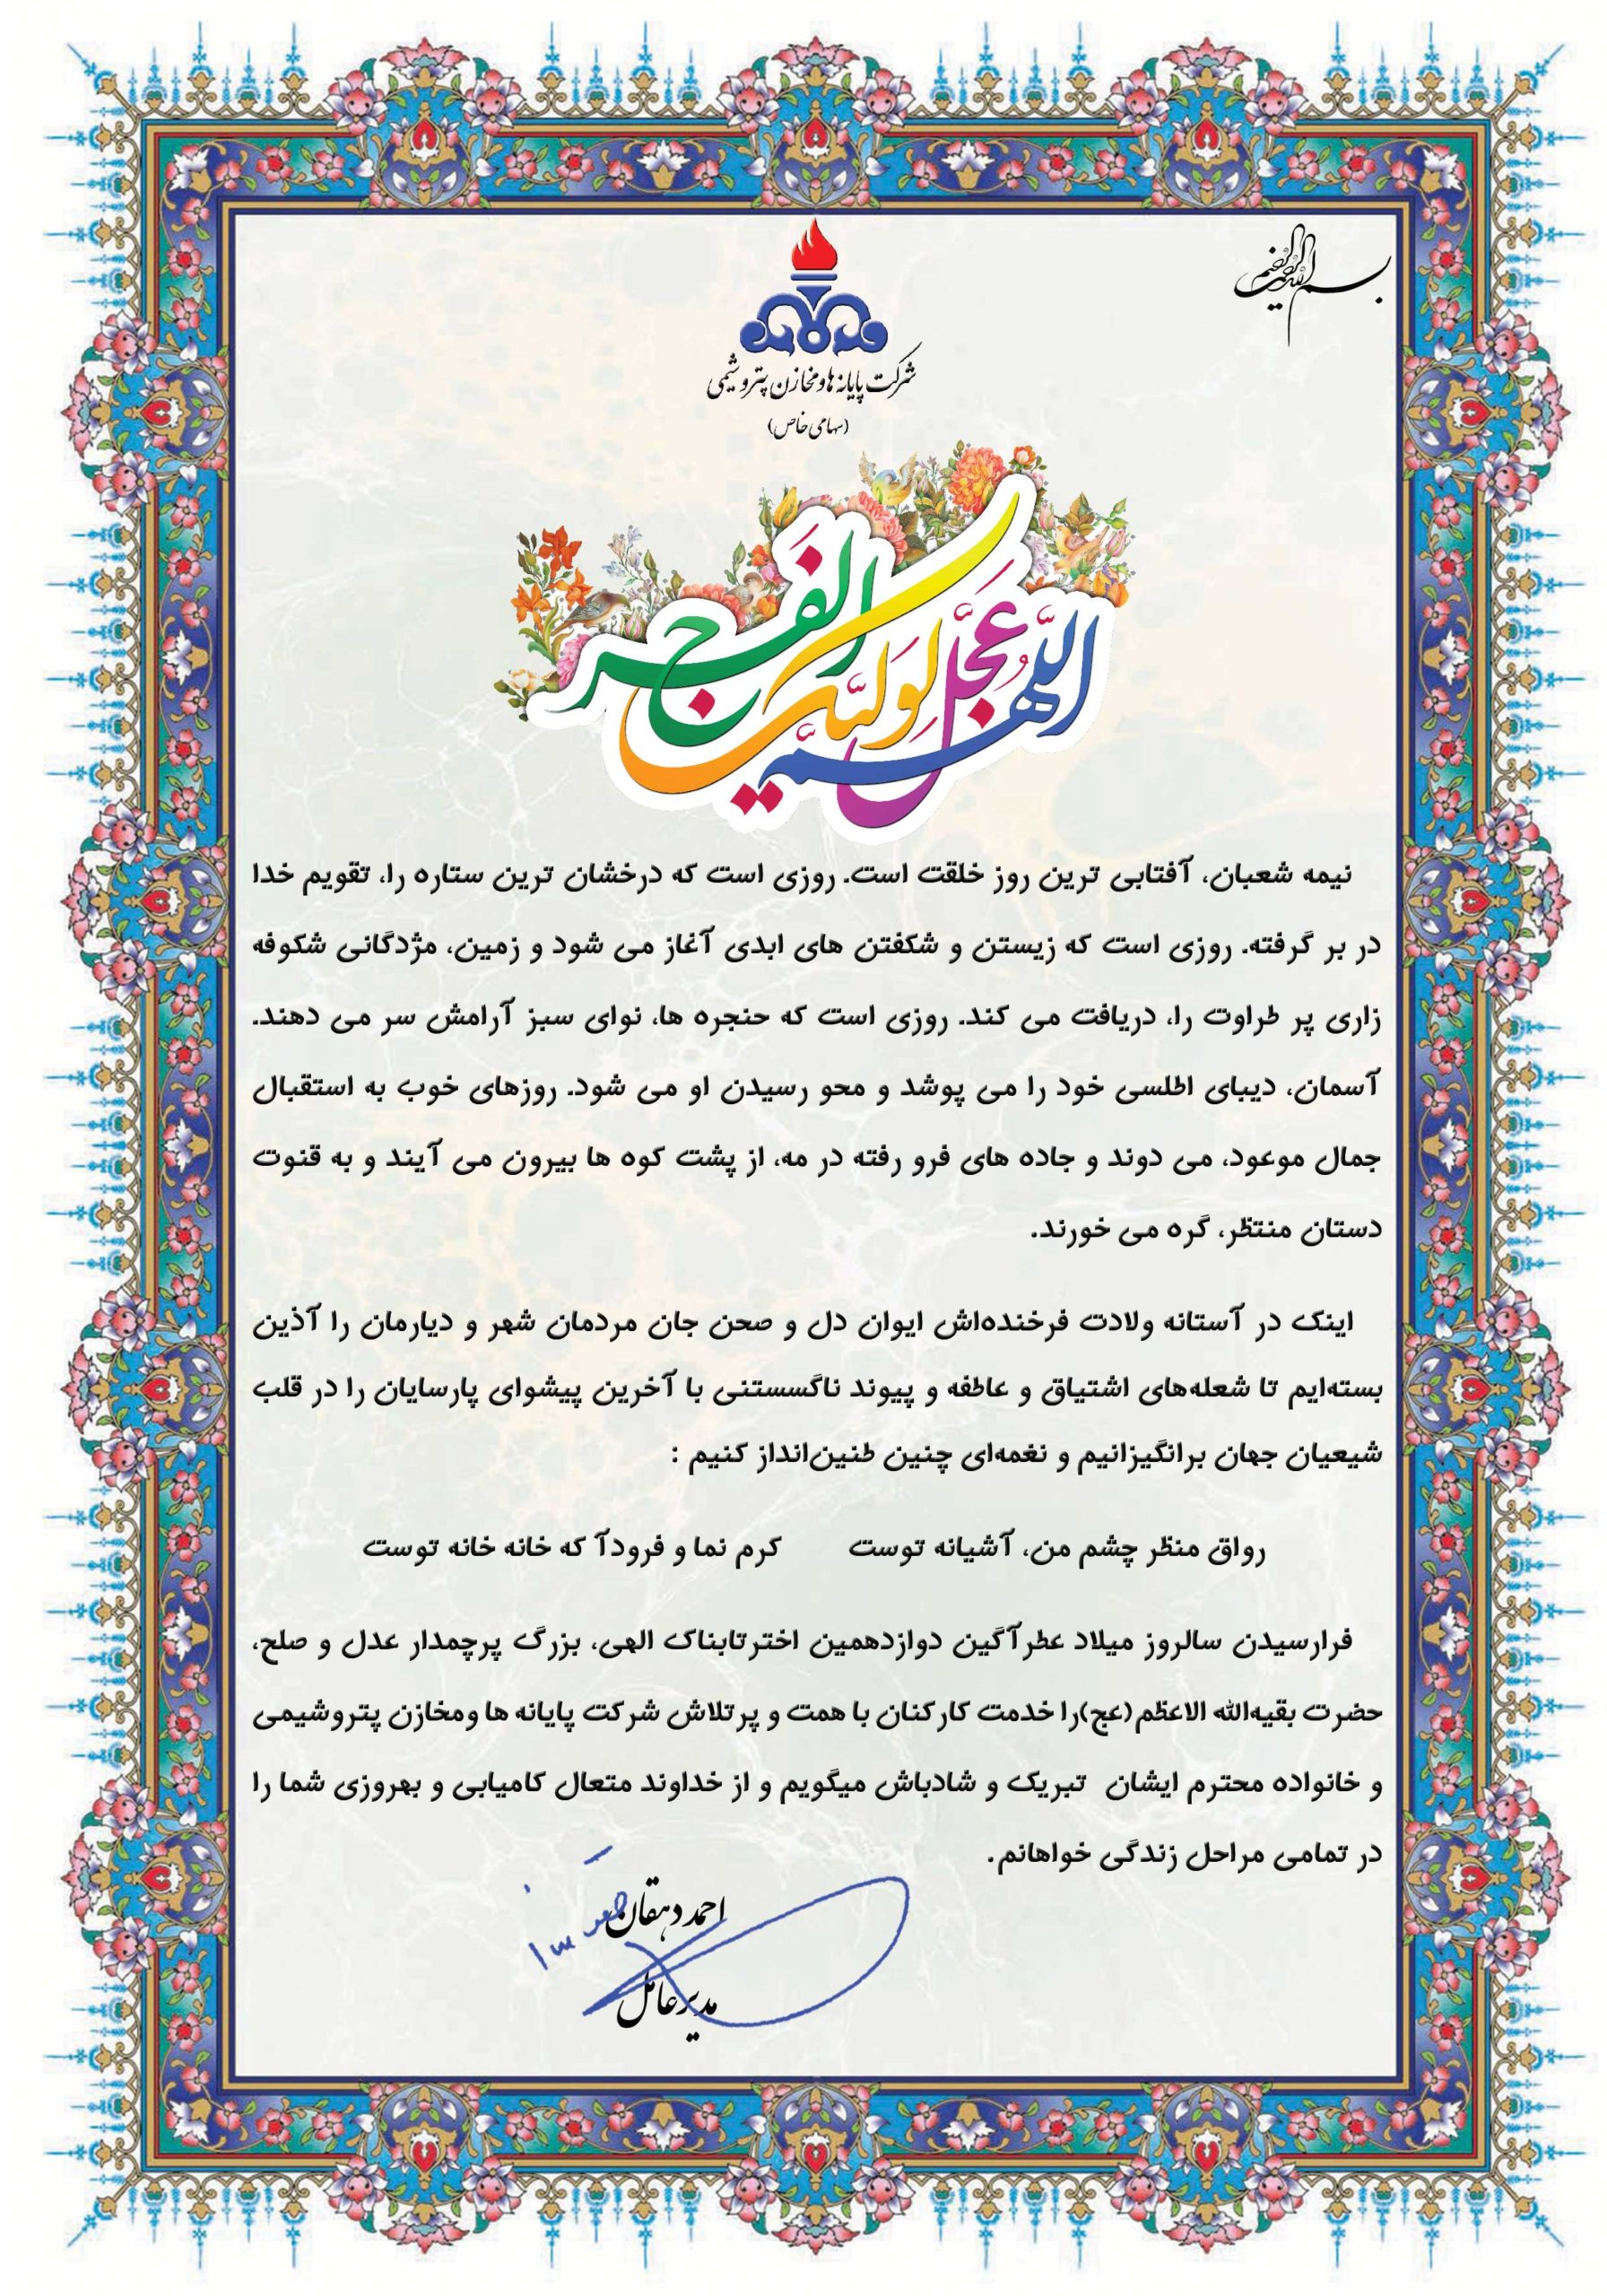 بسم الله الرحمن الرحیم
شرکت پایانه ها و مخازن پتروشیمی
(سهامی خاص)
اللّهم عجّل لولیّک الفرج
نیمه شعبان، آفتابی ترین روز خلقت است. روزی است که درخشان ترین ستاره را، تقویم خدا
در بر گرفته. روزی است که زیستن و شکفتن های ابدی آغاز می شود و زمین، مژدگانی شکوفه
زاری پر طراوت را، دریافت می کند. روزی است که حنجره ها، نوای سبز آرامش سر می دهند.
آسمان، دیبای اطلسی خود را می پوشد و محو رسیدن او می شود. روزهای خوب به استقبال
جمال موعود، می دوند و جاده های فرو رفته در مه، از پشت کوه ها بیرون می آیند و به قنوت
دستان منتظر، گره می خورند.
اینک در آستانه ولادت فرخنده‌اش ایوان دل و صحن جان مردمان شهر و دیارمان را آذین
بسته‌ایم تا شعله‌های اشتیاق و عاطفه و پیوند ناگسستنی با آخرین پیشوای پارسایان را در قلب
شیعیان جهان برانگیزانیم و نغمه‌ای چنین طنین‌انداز کنیم :
رواق منظر چشم من، آشیانه توست کرم نما و فرودآ که خانه خانه توست
فرارسیدن سالروز میلاد عطرآگین دوازدهمین اخترتابناک الهی، بزرگ پرچمدار عدل و صلح،
حضرت بقیه‌الله الاعظم (عج)را خدمت کارکنان با همت و پرتلاش شرکت پایانه ها ومخازن پتروشیمی
و خانواده محترم ایشان تبریک و شادباش میگویم و از خداوند متعال کامیابی و بهروزی شما را
در تمامی مراحل زندگی خواهانم.
احمد دهقان
مدیرعامل